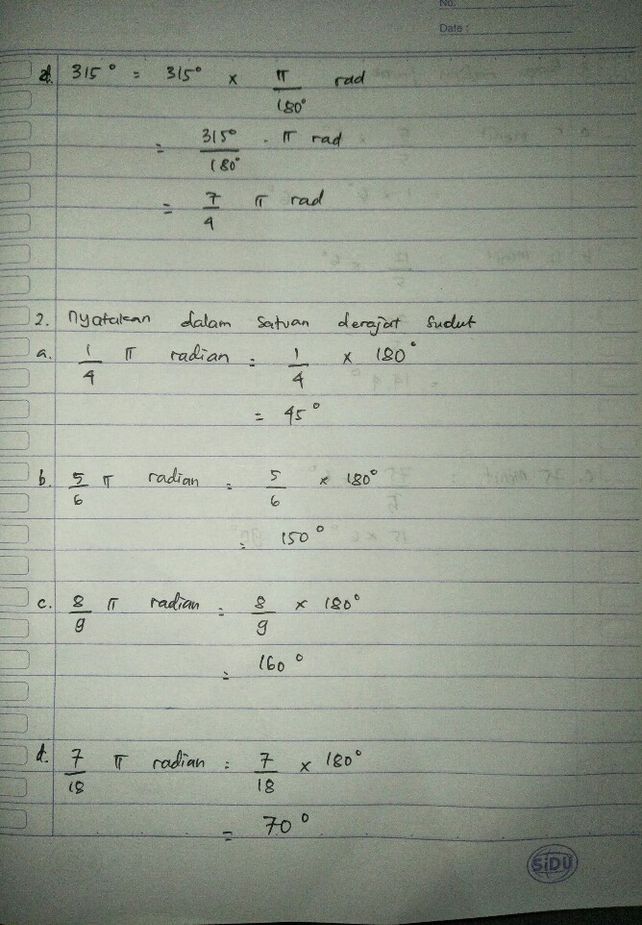 No.
Date :
d. 315° = 315° × π/180° rad
= 315°/180° . π rad
= 7/4 π rad
2. Nyatakan dalam satuan derajat sudut
a. 1/4 π radian = 1/4 × 180°
= 45°
b. 5/6 π radian = 5/6 × 180°
= 150°
c. 8/9 π radian = 8/9 × 180°
= 160°
d. 7/18 π radian = 7/18 × 180°
= 70°
SiDU